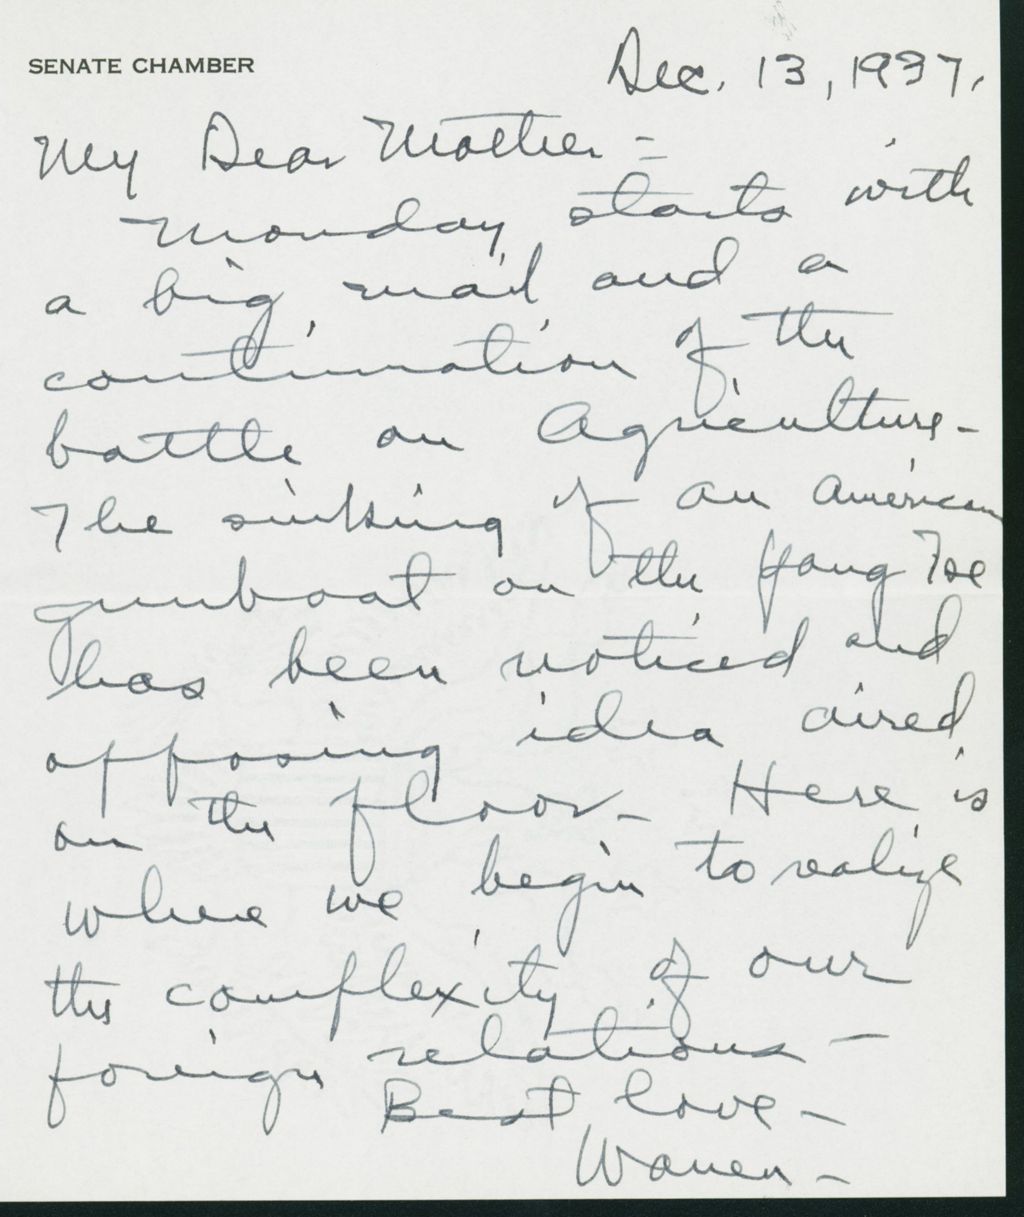 SENATE CHAMBER
Dec. 13, 1937.
My Dear Mother =
Monday starts with
a big mail and a
continuation of the
battle on Agriculture -
The sinking of an American
gunboat on the Yang Tse
has been noticed and
opposing idea aired
on the floor - Here is
where we begin to realize
the complexity of our
foreign relations -
Best love -
Warren -